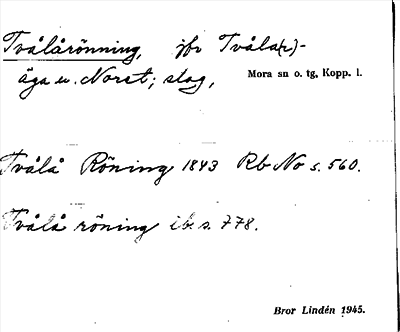 Tvålårönning, jfr Tvåla(r)-
äga u. Noret; slog,
Mora sn o. tg, Kopp. l.
Tvålå Röning 1843 Rb No s. 560.
Tvålå röning ib. s. 778.
Bror Lindén 1945.